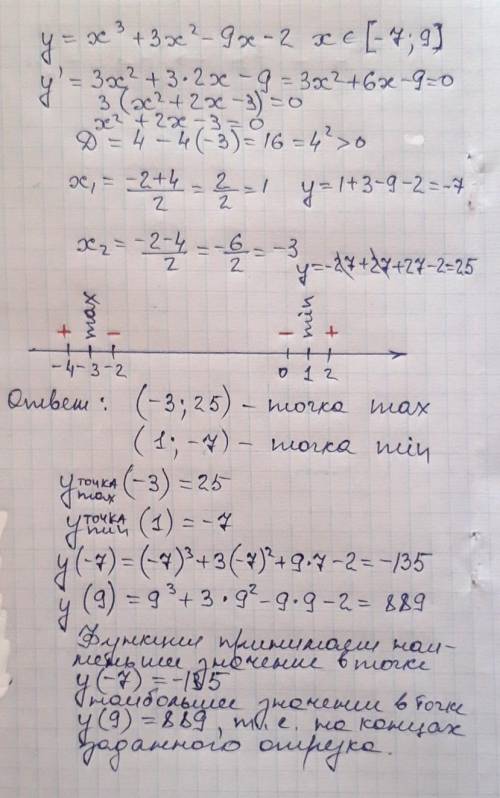 y = x³ + 3x² - 9x - 2 x ∈ [-7; 9]
y' = 3x² + 3·2x - 9 = 3x² + 6x - 9 = 0
3(x² + 2x - 3) = 0
x² + 2x - 3 = 0
D = 4 - 4(-3) = 16 = 4² > 0
x₁ = (-2+4)/2 = 2/2 = 1 y = 1+3-9-2 = -7
x₂ = (-2-4)/2 = -6/2 = -3 y = -27+27+27-2=25
+ max - - min +
-4 -3 -2 0 1 2
Ответ: (-3; 25) - точка max
(1; -7) - точка min
y точка max (-3) = 25
y точка min (1) = -7
y(-7) = (-7)³ + 3(-7)² + 9·7 - 2 = -135
y(9) = 9³ + 3·9² - 9·9 - 2 = 889
Функция принимает наи-
меньшее значение в точке
y(-7) = -135
наибольшее значении в точке
y(9) = 889, т.е. на концах
заданного отрезка.